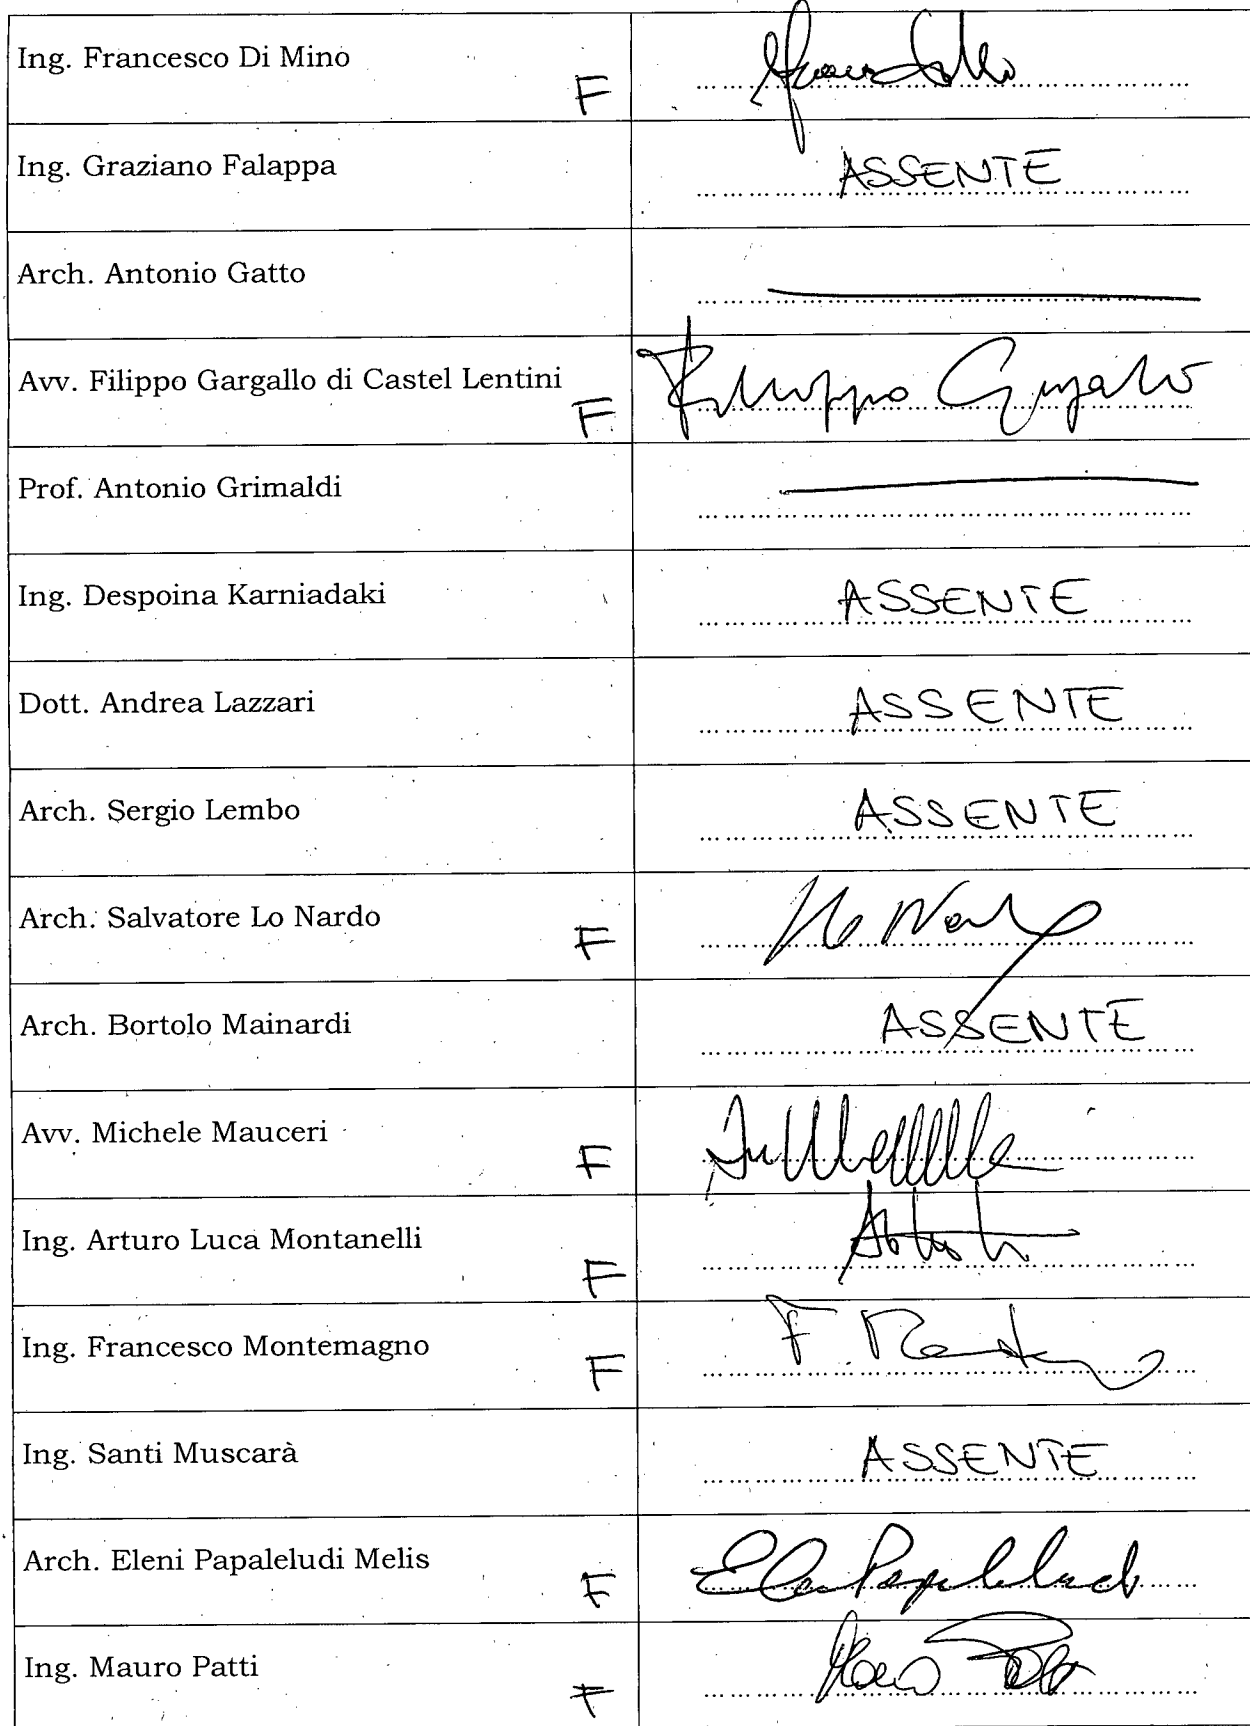 Ing. Francesco Di Mino
F
Ing. Graziano Falappa
ASSENTE
Arch. Antonio Gatto
Avv. Filippo Gargallo di Castel Lentini
F
Filippo Gargallo
Prof. Antonio Grimaldi
Ing. Despoina Karniadaki
ASSENTE
Dott. Andrea Lazzari
ASSENTE
Arch. Sergio Lembo
ASSENTE
Arch. Salvatore Lo Nardo
F
Lo Nardo
Arch. Bortolo Mainardi
ASSENTE
Avv. Michele Mauceri
F
Ing. Arturo Luca Montanelli
F
Ing. Francesco Montemagno
F
Ing. Santi Muscarà
ASSENTE
Arch. Eleni Papaleludi Melis
F
Ing. Mauro Patti
F